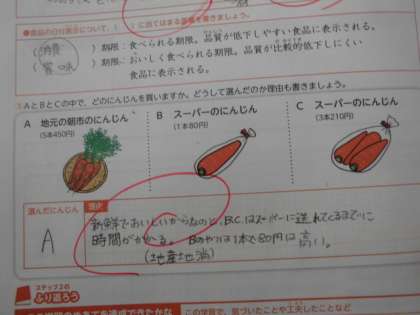 ●食品の日付表示について、( )に当てはまる言葉を書きましょう。
(消費)期限：食べられる期限。品質が低下しやすい食品に表示される。
(賞味)期限：おいしく食べられる期限。品質が比較的低下しにくい
食品に表示される。
AとBとCの中で、どのにんじんを買いますか。どうして選んだのか理由も書きましょう。
A 地元の朝市のにんじん
(5本450円)
B スーパーのにんじん
(1本80円)
C スーパーのにんじん
(3本210円)
選んだにんじん
A
理由
新鮮でおいしいからなのと、B,Cはスーパーに送れてくるまでに
時間がかかる。Bのやつは1本で80円は高い。
(地産地消)
ステップ2の
ふり返ろう